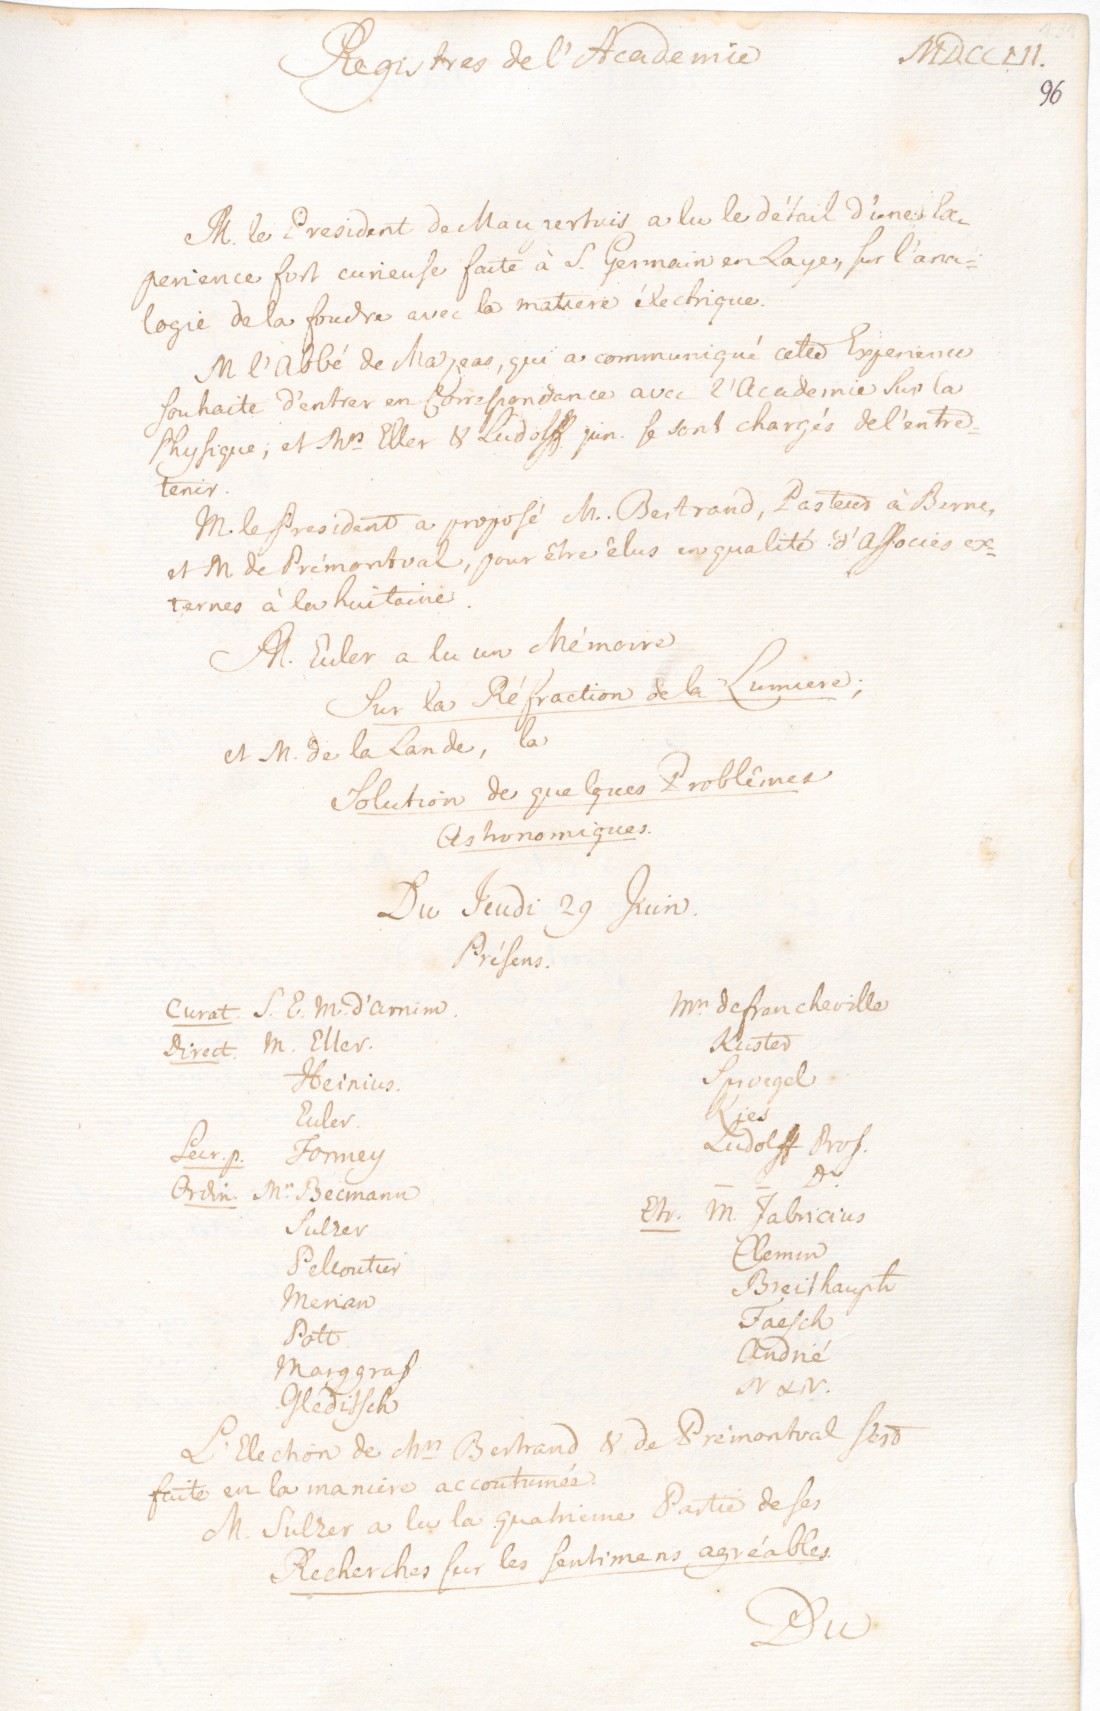 Registres de l'Academie MDCCLII.
96
M. le President de Maupertuis a lu le détail d'une Ex-
perience fort curieuse faite à S. Germain en Laye, sur l'ana-
logie de la foudre avec la matiere électrique.
M l'Abbé de Mazeas, qui a communiqué cette Experience
souhaite d'entrer en Correspondance avec l'Academie sur la
Physique; et Mrs Eller & Ludolff jun. se sont chargés de l'entre-
tenir.
M. le President a proposé M. Bertrand, Pasteur à Berne,
et M de Prémontval, pour être élus en qualité d'Associés ex-
ternes à la huitaine.
M. Euler a lu un Mémoire
Sur la Réfraction de la Lumiere;
et M. de la Lande, la
Solution de quelques Problêmes
Astronomiques.
Du Jeudi 29 Juin.
Présens.
Curat. S. E. M. d'Arnim.
Direct. M. Eller.
Heinius.
Euler.
Secr. p. Formey
Ordin. Mrs Becmann
Sulzer
Pelloutier
Merian
Pott
Marggraf
Gleditsch
Mrs de francheville
Kuster
Sproegel
Kies
Ludolff Prof.
— — Dr
Etr. M. Fabricius
Clemm
Breithaupt
Faesch
André
N & N.
L'Election de Mrs Bertrand & de Prémontval s'est
faite en la maniere accoutumée.
M. Sulzer a lu la quatrieme Partie de ses
Recherches sur les sentimens agréables.
Du